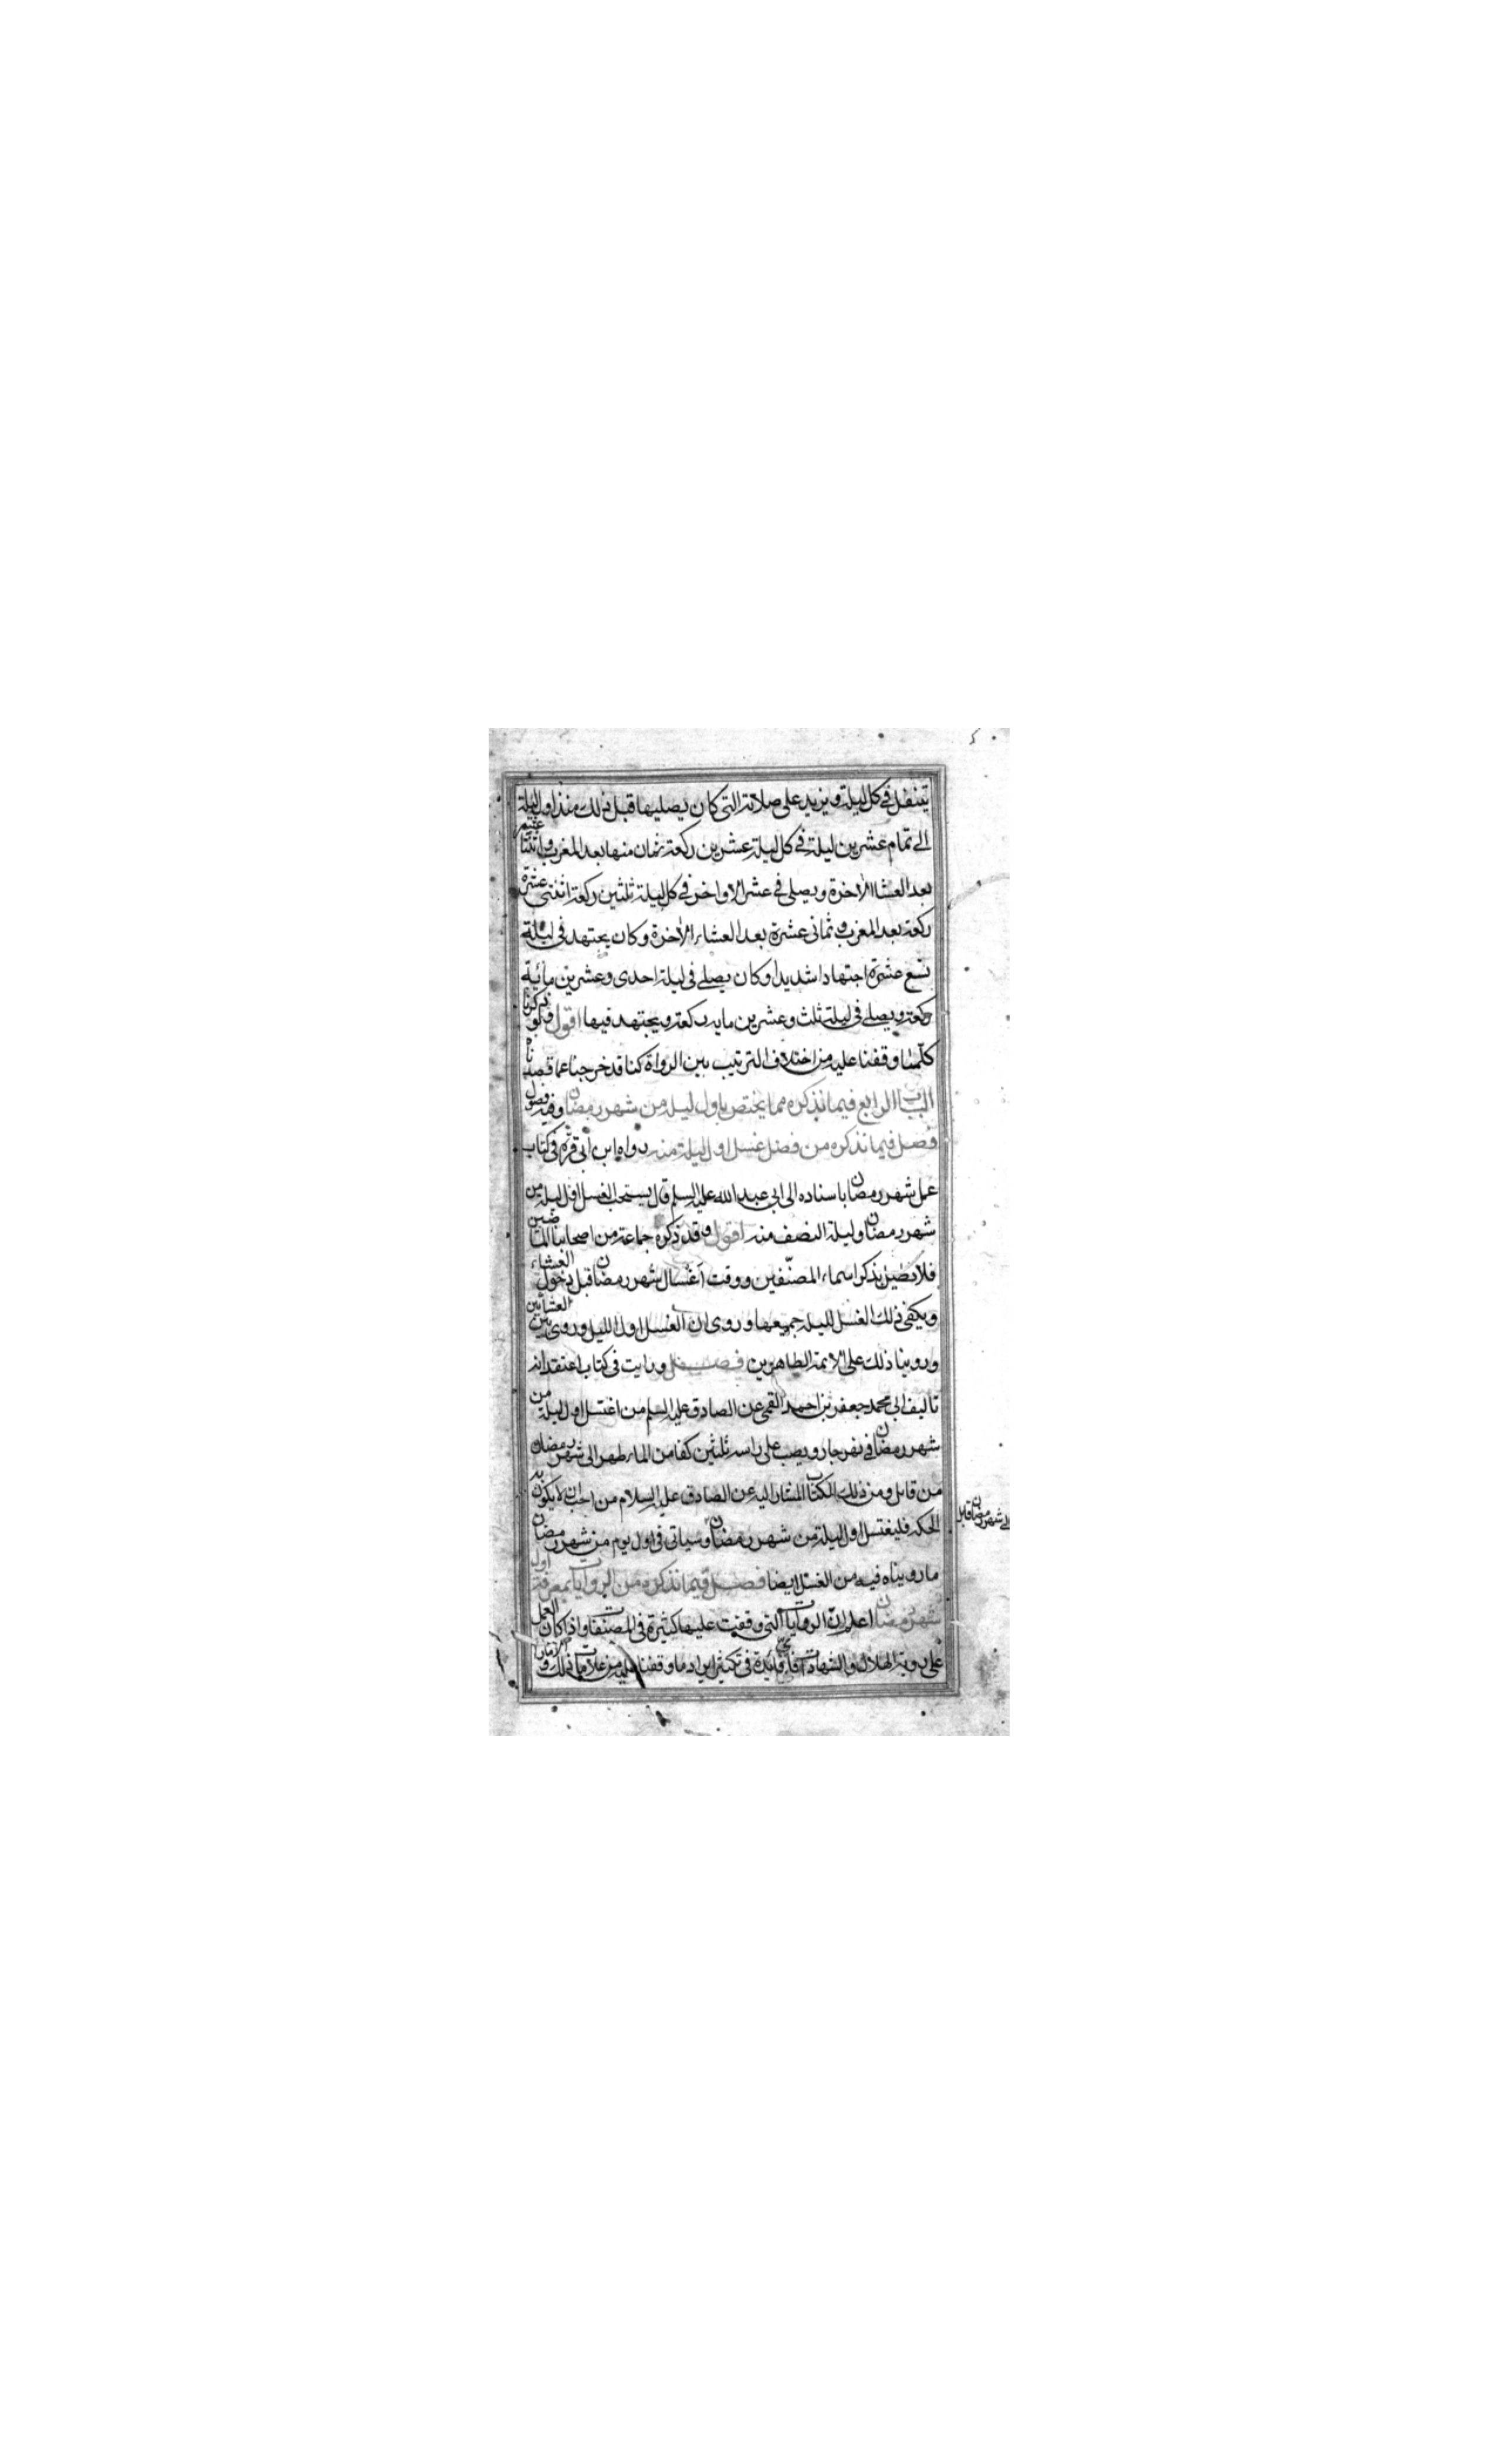 يتنفل في كل ليلة ويزيد على صلاته التي كان يصليها قبل ذلك منذ اول ليلة
الى تمام عشرين ليلة في كل ليلة عشرين ركعة ثمان منها بعد المغرب واثنتا عشر
بعد العشاء الاخرة ويصلى في عشر الاواخر في كل ليلة ثلثين ركعة اثنتى عشرة
ركعة بعد المغرب وثمانى عشرة بعد العشاء الاخرة وكان يجتهد في ليلة
تسع عشرة اجتهادا شديدا وكان يصلى في ليلة احدى وعشرين مائة
ركعة ويصلى في ليلة ثلث وعشرين مايه ركعة ويجتهد فيها اقول ولو ذكرنا
كلما وقفنا عليه من اختلاف الترتيب بين الرواة كنا قد خرجنا عما قصدناه
الباب الرابع فيما نذكره مما يختص باول ليلة من شهر رمضان وفيه فصول
فصل فيما نذكره من فضل غسل اول ليلة منه رواه ابن ابى قرة في كتاب
عمل شهر رمضان باسناده الى ابى عبد الله عليه السلم قال يستحب الغسل اول ليلة من
شهر رمضان وليلة النصف منه اقول وقد ذكره جماعة من اصحابنا الماضين
فلا نطيل بذكر اسماء المصنّفين ووقت اغسال شهر رمضان قبل دخول العشاء
ويكفى ذلك الغسل لليلة جميعها وروى ان الغسل اول الليل وروى بين العشائين
وروينا ذلك على الائمة الطاهرين فصل ورايت في كتاب اعتقد انه
تاليف ابى محمد جعفر بن احمد القمى عن الصادق عليه السلم من اغتسل اول ليلة من
شهر رمضان في نهر جار ويصب على راسه ثلثين كفا من الماء طهر الى شهر رمضان
من قابل ومن ذلك الكتاب المشار اليه عن الصادق عليه السلام من احب ان لا يكون به
الحكه فليغتسل اول ليلة من شهر رمضان وسياتى في اول يوم من شهر رمضان
الى شهر رمضان قابل
ما رويناه فيه من الغسل ايضا فصل فيما نذكره من الروايات بمعرفة اول
شهر رمضان اعلم ان الروايات التى وقفت عليها كثيرة في المصنفات واذا كان العمل
على روية الهلال والشهادات فاى فائدة في تكثير ايراد ما وقفنا عليه من علامات ذلك و